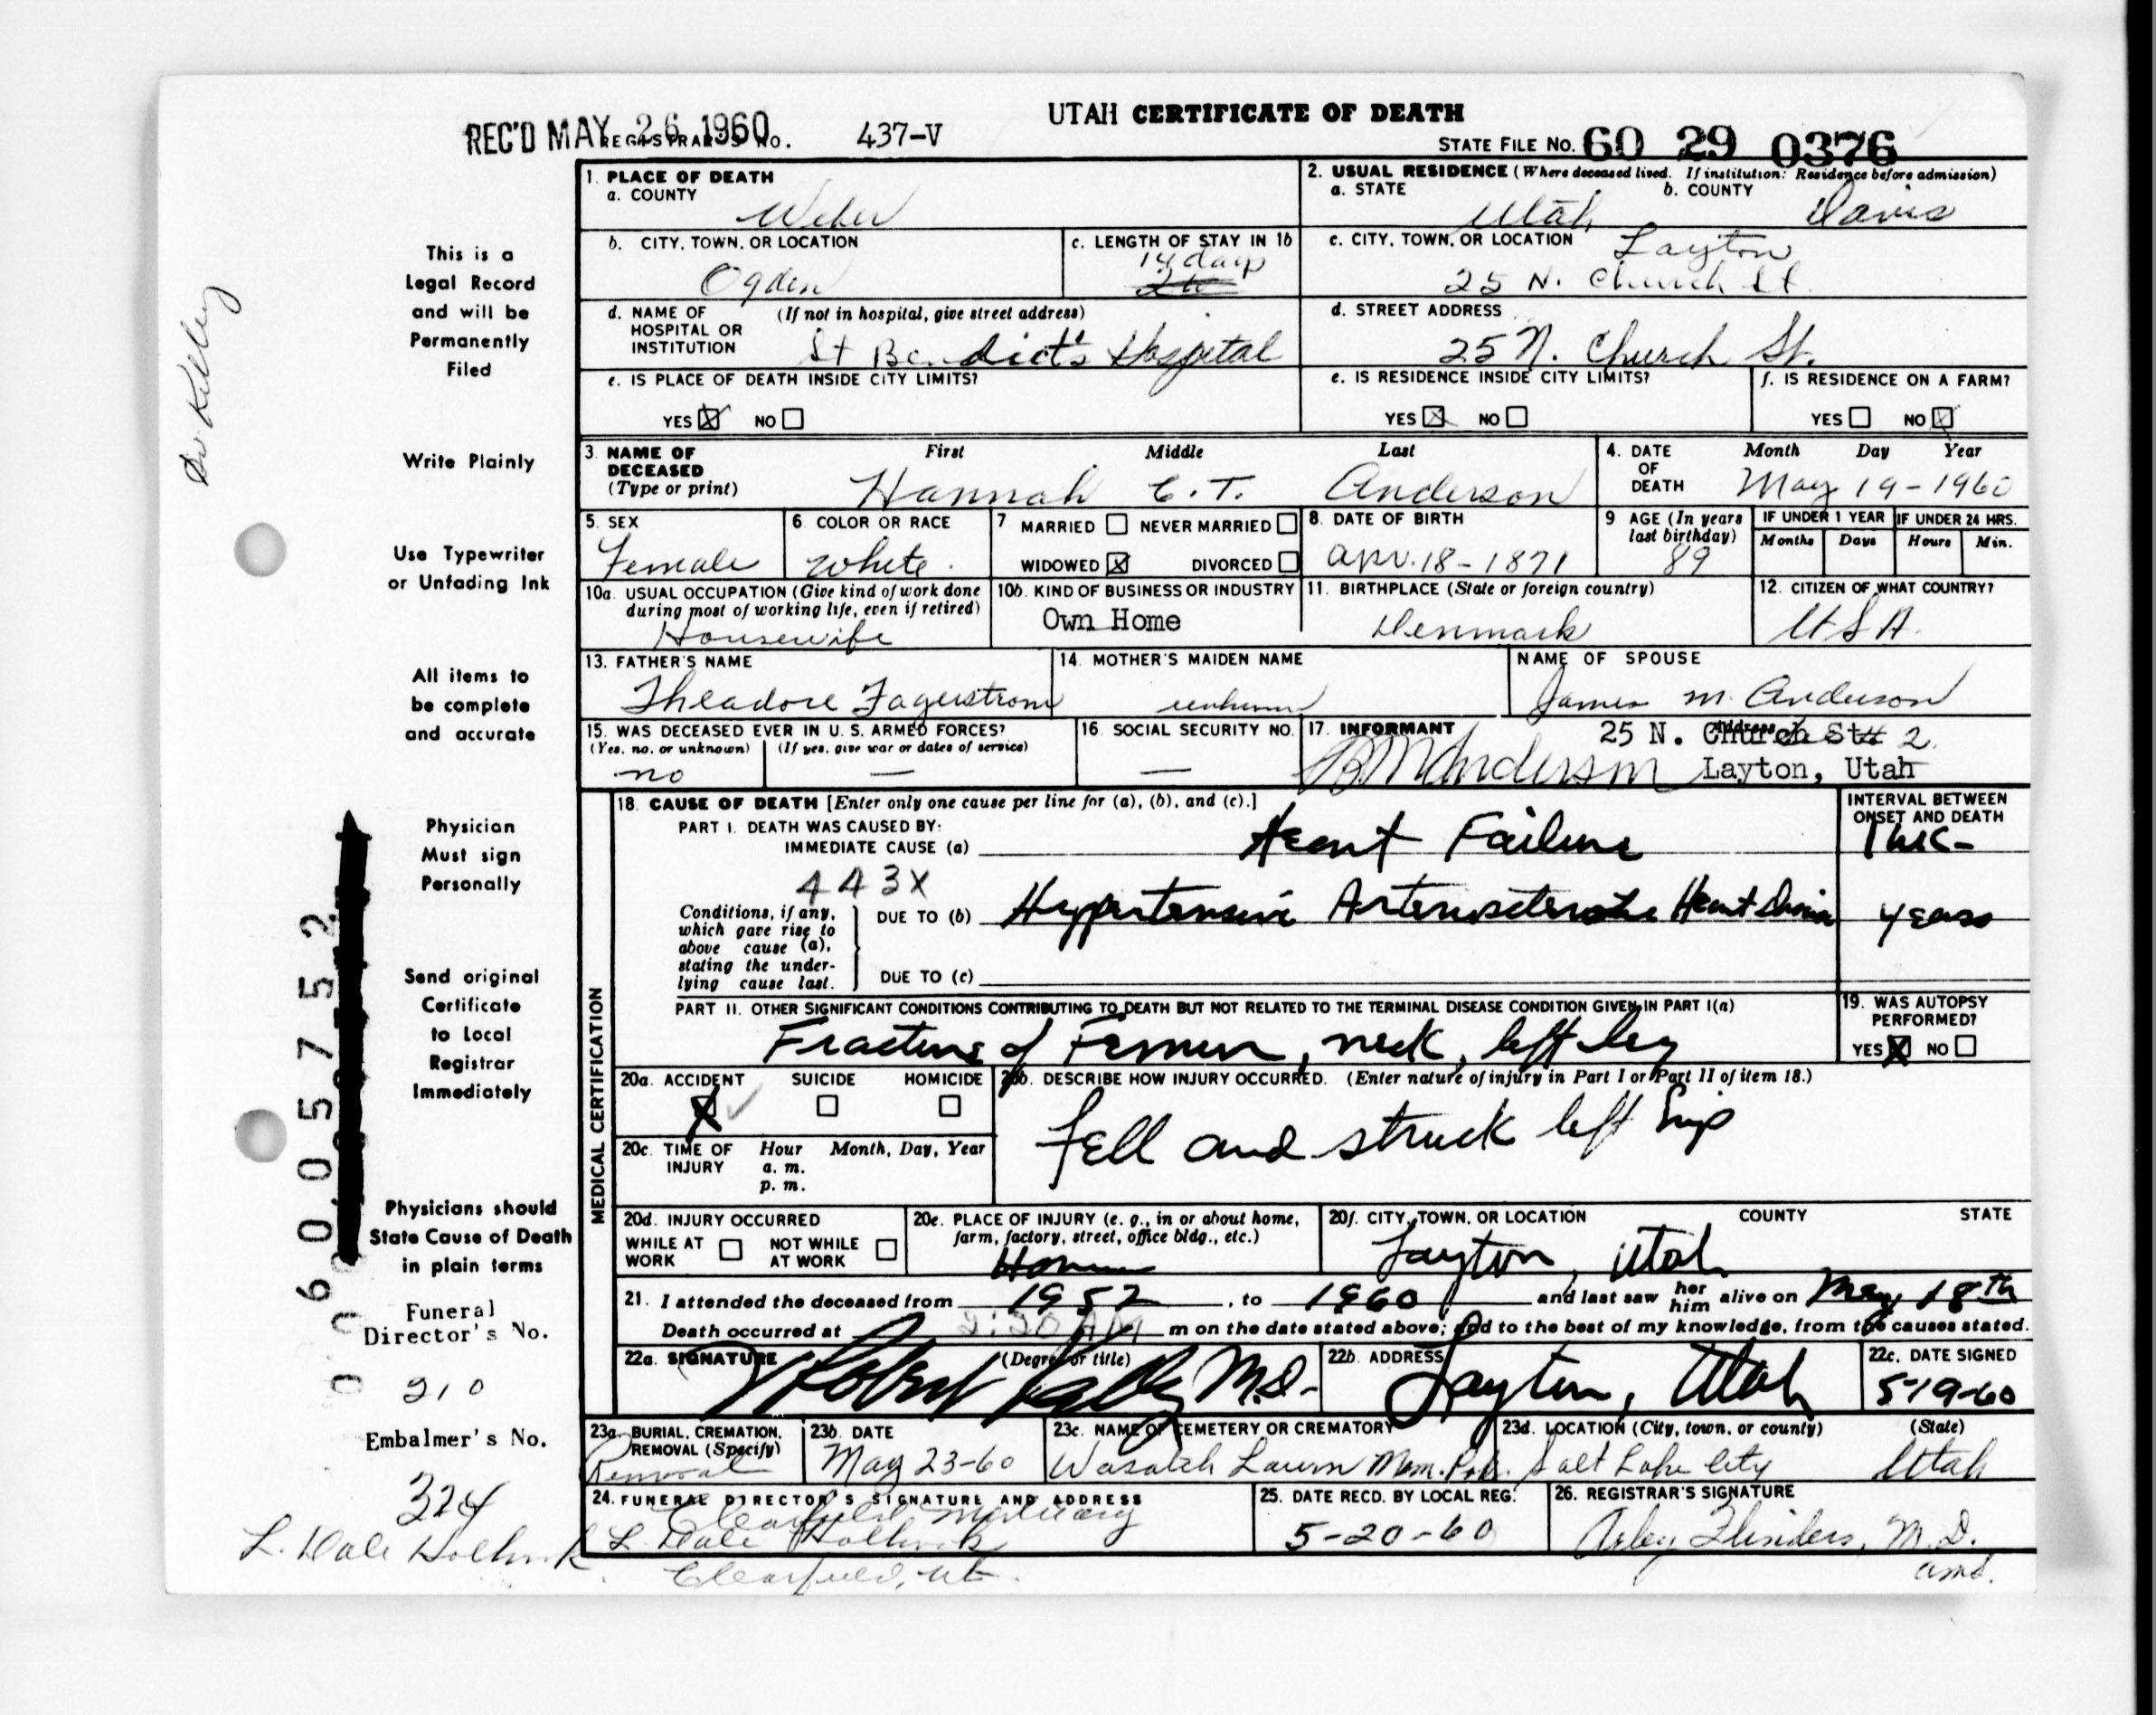 UTAH CERTIFICATE OF DEATH
REC'D MAY 26 1960 REGISTRAR'S NO. 437-V
STATE FILE NO. 60 29 0376
1. PLACE OF DEATH
a. COUNTY
Weber
2. USUAL RESIDENCE (Where deceased lived. If institution: Residence before admission)
a. STATE b. COUNTY
Utah Davis
b. CITY, TOWN, OR LOCATION
Ogden
c. LENGTH OF STAY IN 1b
14 days
c. CITY, TOWN, OR LOCATION Layton
25 N. Church St.
d. NAME OF HOSPITAL OR INSTITUTION (If not in hospital, give street address)
St Benedict's Hospital
d. STREET ADDRESS
25 N. Church St.
e. IS PLACE OF DEATH INSIDE CITY LIMITS?
YES NO
e. IS RESIDENCE INSIDE CITY LIMITS?
YES NO
f. IS RESIDENCE ON A FARM?
YES NO
3. NAME OF DECEASED (Type or print)
First Middle Last
Hannah C. T. Anderson
4. DATE OF DEATH Month Day Year
May 19-1960
5. SEX
Female
6. COLOR OR RACE
White
7 MARRIED NEVER MARRIED
WIDOWED DIVORCED
8. DATE OF BIRTH
Apr. 18-1871
9 AGE (In years last birthday)
89
IF UNDER 1 YEAR IF UNDER 24 HRS.
Months Days Hours Min.
10a. USUAL OCCUPATION (Give kind of work done during most of working life, even if retired)
Housewife
10b. KIND OF BUSINESS OR INDUSTRY
Own Home
11. BIRTHPLACE (State or foreign country)
Denmark
12. CITIZEN OF WHAT COUNTRY?
USA.
13. FATHER'S NAME
Theadore Fagerstrom
14. MOTHER'S MAIDEN NAME
unknown
NAME OF SPOUSE
James M. Anderson
15. WAS DECEASED EVER IN U. S. ARMED FORCES?
(Yes, no, or unknown) (If yes, give war or dates of service)
no —
16. SOCIAL SECURITY NO.
—
17. INFORMANT Address
25 N. Church St # 2
Anderson Layton, Utah
MEDICAL CERTIFICATION
18. CAUSE OF DEATH [Enter only one cause per line for (a), (b), and (c).]
INTERVAL BETWEEN ONSET AND DEATH
PART I. DEATH WAS CAUSED BY:
IMMEDIATE CAUSE (a) Heart Failure 1 wk-
443X
Conditions, if any, which gave rise to above cause (a), stating the underlying cause last.
DUE TO (b) Hypertensive Arteriosclerotic Heart Disease years
DUE TO (c)
PART II. OTHER SIGNIFICANT CONDITIONS CONTRIBUTING TO DEATH BUT NOT RELATED TO THE TERMINAL DISEASE CONDITION GIVEN IN PART I(a)
Fracture of Femur, neck, left leg
19. WAS AUTOPSY PERFORMED?
YES NO
20a. ACCIDENT SUICIDE HOMICIDE
20b. DESCRIBE HOW INJURY OCCURRED. (Enter nature of injury in Part I or Part II of item 18.)
Fell and struck left hip
20c. TIME OF INJURY Hour Month, Day, Year
a. m.
p. m.
20d. INJURY OCCURRED
WHILE AT WORK NOT WHILE AT WORK
20e. PLACE OF INJURY (e. g., in or about home, farm, factory, street, office bldg., etc.)
Home
20f. CITY, TOWN, OR LOCATION COUNTY STATE
Layton, Utah
21. I attended the deceased from 1952, to 1960 and last saw her him alive on May 18th
Death occurred at 2:20 AM m on the date stated above; and to the best of my knowledge, from the causes stated.
22a. SIGNATURE (Degree or title)
Robert Kelly M.D.
22b. ADDRESS
Layton, Utah
22c. DATE SIGNED
5-19-60
23a. BURIAL, CREMATION, REMOVAL (Specify)
Removal
23b. DATE
May 23-60
23c. NAME OF CEMETERY OR CREMATORY
Wasatch Lawn Mem. Pk.
23d. LOCATION (City, town, or county) (State)
Salt Lake City Utah
24. FUNERAL DIRECTOR'S SIGNATURE AND ADDRESS
Clearfield Mortuary
L. Dale Holbrook
Clearfield, Ut.
25. DATE RECD. BY LOCAL REG.
5-20-60
26. REGISTRAR'S SIGNATURE
Arley Flinders, M.D.
amd.
Dr Kelly
This is a
Legal Record
and will be
Permanently
Filed
Write Plainly
Use Typewriter
or Unfading Ink
All items to
be complete
and accurate
Physician
Must sign
Personally
Send original
Certificate
to Local
Registrar
Immediately
Physicians should
State Cause of Death
in plain terms
Funeral
Director's No.
210
Embalmer's No.
324
L. Dale Holbrook